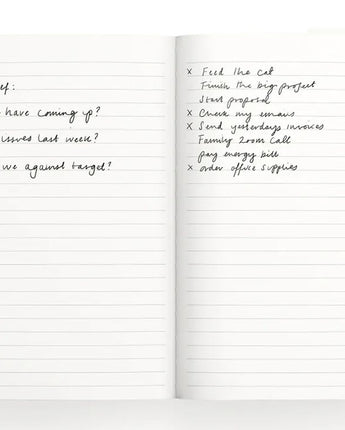 ef:
have coming up?
issues last week?
we against target?
x Feed the cat
Finish the big project
Start proposal
x Check my emails
x Send yesterdays invoices
Family zoom call
pay energy bill
x order office supplies